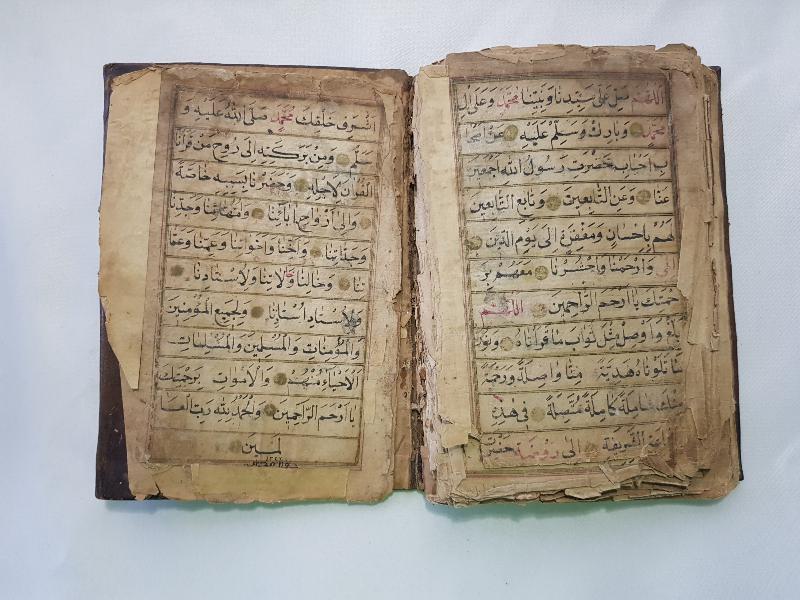 اللهم صل على سيدنا ونبينا محمد وعلى ال
محمد وبارك وسلم عليه عن اصحا
ب احباب حضرت رسول الله اجمعين
عنا وعن التابعين وتابع التابعين
لهم باحسان ومغفرة الى يوم الدين
وارحمنا واحشرنا معهم بر
حمتك يا ارحم الراحمين اللهم
بلغ واوصل مثل ثواب ما قراناه ونور
ما تلوناه هدية منا واصلة ورحمة
كاملة متصلة فى هذه
الشريفة الى روضة حضرت
اشرف خلقك محمد صلى الله عليه و
سلم ومن بركته الى روح من قرانا
القران لاجله وحضرنا بسببه خاصة
والى ارواح ابائنا وامهاتنا وجدنا
وجداتنا واخواتنا وعمنا وعما
تنا وخالنا وخالاتنا ولاستادنا
ولاستاد استادنا ولجميع المؤمنين
والمؤمنات والمسلمين والمسلمات
الاحياء منهم والاموات برحمتك
يا ارحم الراحمين والحمد لله رب العا
لمين